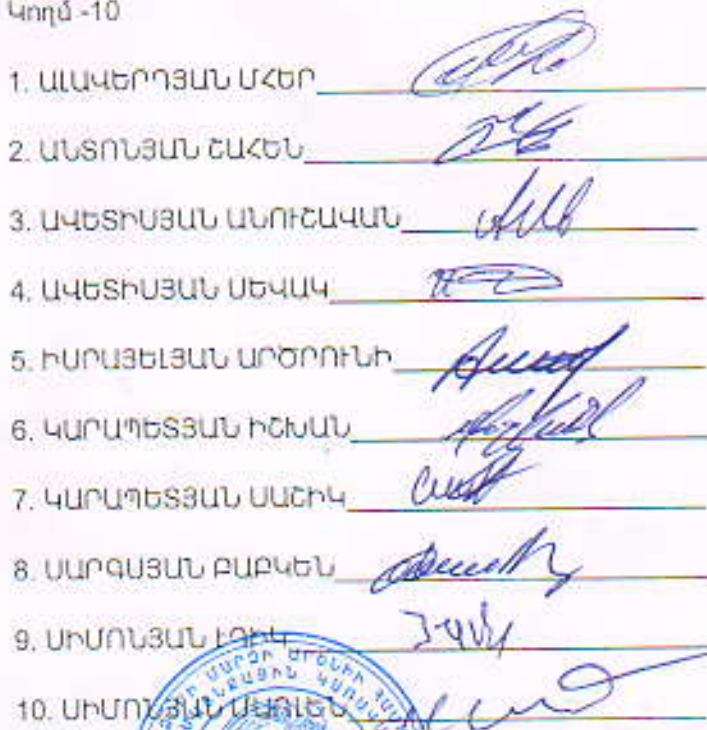 Կողմ -10
1. ԱԼԱՎԵՐԴՅԱՆ ՄՀԵՐ
2. ԱՆՏՈՆՅԱՆ ՇԱՀԵՆ
3. ԱՎԵՏԻՍՅԱՆ ԱՆՈՒՇԱՎԱՆ
4. ԱՎԵՏԻՍՅԱՆ ՍԵՎԱԿ
5. ԻՍՐԱՅԵԼՅԱՆ ԱՐԾՐՈՒՆԻ
6. ԿԱՐԱՊԵՏՅԱՆ ԻՇԽԱՆ
7. ԿԱՐԱՊԵՏՅԱՆ ՍԱՇԻԿ
8. ՍԱՐԳՍՅԱՆ ԲԱԲԿԵՆ
9. ՍԻՄՈՆՅԱՆ ԷԴԻԿ
10. ՍԻՄՈՆՅԱՆ ՍԱՌԼԵՆ
ՄԱՐԶԻ ԱՐԵՆԻ